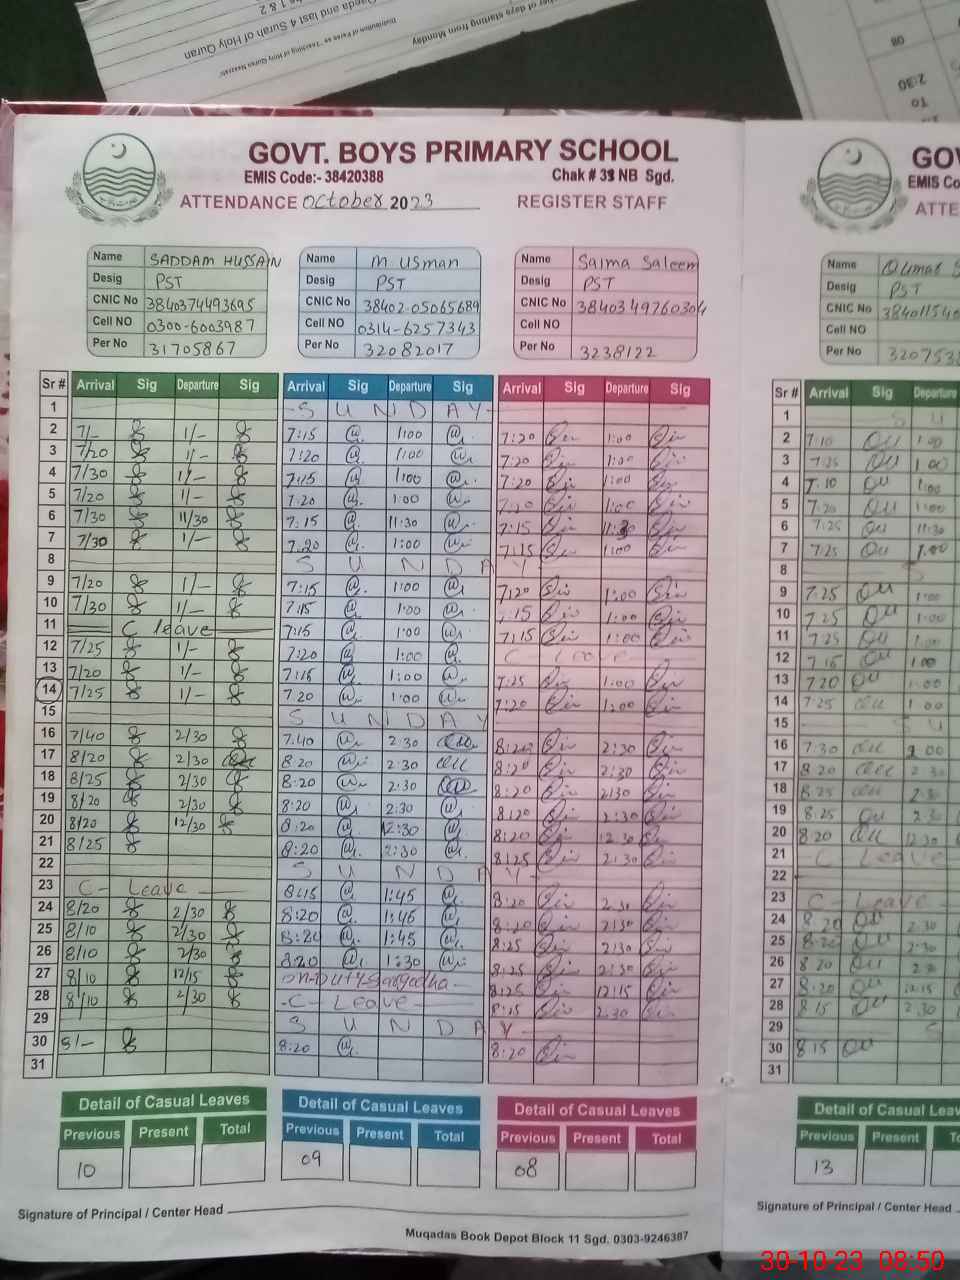 Qaeda and last 4 Surah of Holy Quran
ber of days starting from Monday
08
2:30
To
GOVT. BOYS PRIMARY SCHOOL
EMIS Code:- 38420388 Chak # 38 NB Sgd.
ATTENDANCE October 2023 REGISTER STAFF
Name SADDAM HUSSAIN
Desig PST
CNIC No 3840374493695
Cell NO 0300-6003987
Per No 31705867
Name M USman
Desig PST
CNIC No 38402-05065689
Cell NO 0314-6257343
Per No 32082017
Name Saima Saleem
Desig PST
CNIC No 3840349760304
Cell NO
Per No 3238122
Sr # Arrival Sig Departure Sig Arrival Sig Departure Sig Arrival Sig Departure Sig
1 SUNDAY
2 7/- 1/- 7:15 1:00 7:20 1:00
3 7/20 1/- 7:20 1:00 7:20 1:00
4 7/30 1/- 7:15 1:00 7:20 1:00
5 7/20 1/- 7:20 1:00 7:20 1:00
6 7/30 11/30 7:15 11:30 7:15 11:30
7 7/30 1/- 7.20 1:00 7:15 1:00
8 SUNDAY
9 7/20 1/- 7:15 1:00 7:20 1:00
10 7/30 1/- 7:15 1:00 7:15 1:00
11 C leave 7:15 1:00 7:15 1:00
12 7/25 1/- 7:20 1:00 C Leave
13 7/20 1/- 7:15 1:00 7:25 1:00
14 7/25 1/- 7.20 1:00 7:20 1:00
15 SUNDAY
16 7/40 2/30 7.40 2:30 8:20 2:30
17 8/20 2/30 8:20 2:30 8:20 2:30
18 8/25 2/30 8:20 2:30 8:20 2:30
19 8/20 2/30 8:20 2:30 8:20 2:30
20 8/20 12/30 8:20 12:30 8:20 12:30
21 8/25 8:20 2:30 8:25 2:30
22 SUNDAY
23 C- Leave 8:15 1:45 8:20 2:30
24 8/20 2/30 8:20 1:45 8:20 2:30
25 8/10 2/30 8:20 1:45 8:25 2:30
26 8/10 2/30 8:20 1:30 8:25 2:30
27 8/10 12/15 on-Duty-Sargodha 8:25 12:15
28 8/10 2/30 -C- Leave 8:15 2:30
29 SUNDAY
30 8/- 8:20 8:20
31
Detail of Casual Leaves Detail of Casual Leaves Detail of Casual Leaves
Previous Present Total Previous Present Total Previous Present Total
10 09 08
Signature of Principal / Center Head
Muqadas Book Depot Block 11 Sgd. 0303-9246387
GOV
EMIS Co
ATTE
Name
Desig PST
CNIC No
Cell NO
Per No
Sr # Arrival Sig Departure
1 SU
2 7:10 1:00
3 7:25 1:00
4 7.10 1:00
5 7:20 1:00
6 7:25 11:30
7 7:25 1:00
8 S
9 7.25 1:00
10 7:25 1:00
11 7:25 1:00
12 7:15 1:00
13 7.20 1:00
14 7:25 1:00
15 SU
16 7:30 2:00
17 8:20 2:30
18 8:25 2:30
19 8:25 2:30
20 8:20 12:30
21 C Leave
22
23 C- Leave
24 8.20 2:30
25 8:20 2:30
26 8:20 2:30
27 8:20 12:15
28 8:15 2:30
29
30 8:15
31
Detail of Casual Leav
Previous Present
13
Signature of Principal / Center Head
30-10-23 08:50